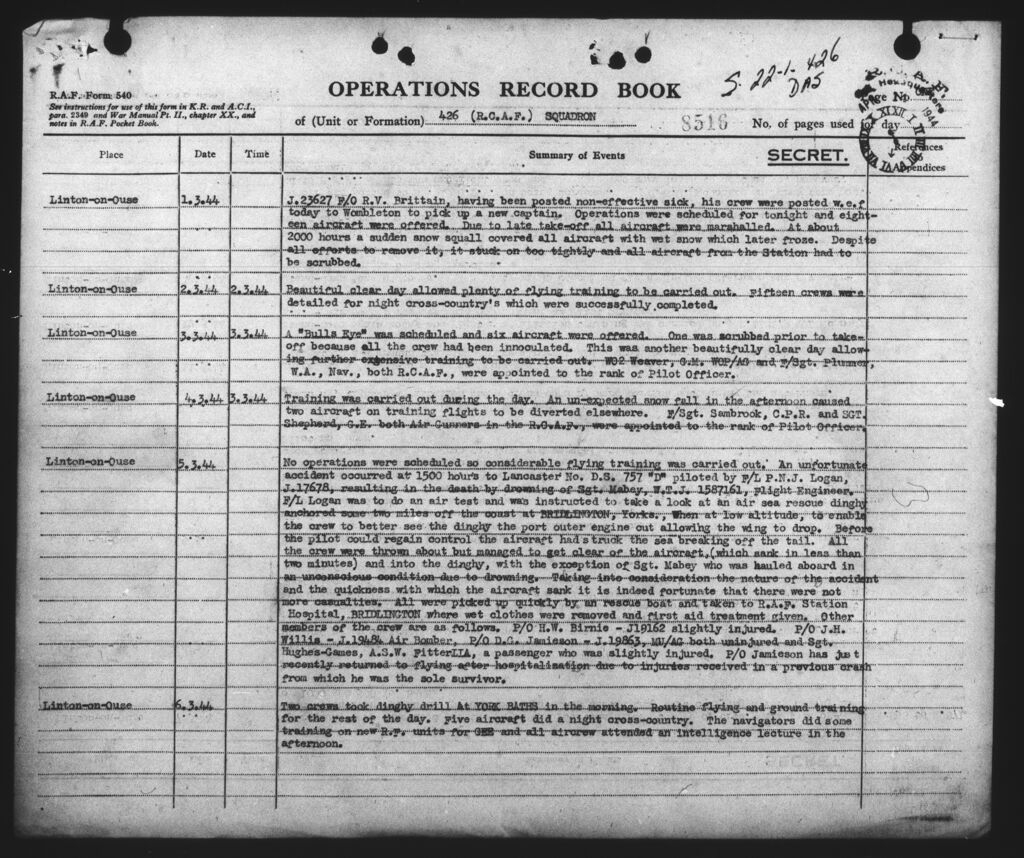 S. 22-1-426
DAS
OPERATIONS RECORD BOOK
R.A.F. Form 540
See instructions for use of this form in K.R. and A.C.I.,
para. 2349 and War Manual Pt. II., chapter XX., and
notes in R.A.F. Pocket Book.
of (Unit or Formation) 426 (R.C.A.F.) SQUADRON
8516
Page No.
No. of pages used for day
Place Date Time Summary of Events
SECRET.
References
to Appendices
Linton-on-Ouse 1.3.44 J.23627 F/O R.V. Brittain, having been posted non-effective sick, his crew were posted w.e.f
today to Wombleton to pick up a new captain. Operations were scheduled for tonight and eight-
een aircraft were offered. Due to late take-off all aircraft were marshalled. At about
2000 hours a sudden snow squall covered all aircraft with wet snow which later froze. Despite
all efforts to remove it, it stuck on too tightly and all aircraft from the Station had to
be scrubbed.
Linton-on-Ouse 2.3.44 2.3.44 Beautiful clear day allowed plenty of flying training to be carried out. Fifteen crews were
detailed for night cross-country's which were successfully completed.
Linton-on-Ouse 3.3.44 3.3.44 A "Bulls Eye" was scheduled and six aircraft were offered. One was scrubbed prior to take-
off because all the crew had been innoculated. This was another beautifully clear day allow-
ing further expensive training to be carried out. WO2 Weaver, G.M. WOP/AG and F/Sgt. Plummer,
W.A., Nav., both R.C.A.F., were appointed to the rank of Pilot Officer.
Linton-on-Ouse 4.3.44 3.3.44 Training was carried out during the day. An un-expected snow fall in the afternoon caused
two aircraft on training flights to be diverted elsewhere. F/Sgt. Sambrook, C.P.R. and SGT.
Shepherd, G.E. both Air Gunners in the R.C.A.F., were appointed to the rank of Pilot Officer.
Linton-on-Ouse 5.3.44 No operations were scheduled so considerable flying training was carried out. An unfortunate
accident occurred at 1500 hours to Lancaster No. D.S. 757 "D" piloted by F/L P.N.J. Logan,
J.17678, resulting in the death by drowning of Sgt. Mabey, W.T.J. 1587161, Flight Engineer.
F/L Logan was to do an air test and was instructed to take a look at an air sea rescue dinghy
anchored some two miles off the coast at BRIDLINGTON, Yorks., When at low altitude, to enable
the crew to better see the dinghy the port outer engine cut allowing the wing to drop. Before
the pilot could regain control the aircraft had struck the sea breaking off the tail. All
the crew were thrown about but managed to get clear of the aircraft,(which sank in less than
two minutes) and into the dinghy, with the exception of Sgt. Mabey who was hauled aboard in
an unconscious condition due to drowning. Taking into consideration the nature of the accident
and the quickness with which the aircraft sank it is indeed fortunate that there were not
more casualties. All were picked up quickly by an rescue boat and taken to R.A.F. Station
Hospital, BRIDLINGTON where wet clothes were removed and first aid treatment given. Other
members of the crew are as follows. P/O H.W. Birnie - J19162 slightly injured. P/O J.H.
Willis - J.19484 Air Bomber, P/O D.C. Jamieson - J.19863, MU/AG both uninjured and Sgt.
Hughes-Games, A.S.W. FitterIIA, a passenger who was slightly injured. P/O Jamieson has just
recently returned to flying after hospitalization due to injuries received in a previous crash
from which he was the sole survivor.
Linton-on-Ouse 6.3.44 Two crews took dinghy drill at YORK BATHS in the morning. Routine flying and ground training
for the rest of the day. Five aircraft did a night cross-country. The navigators did some
training on new R.F. units for GEE and all aircrew attended an intelligence lecture in the
afternoon.